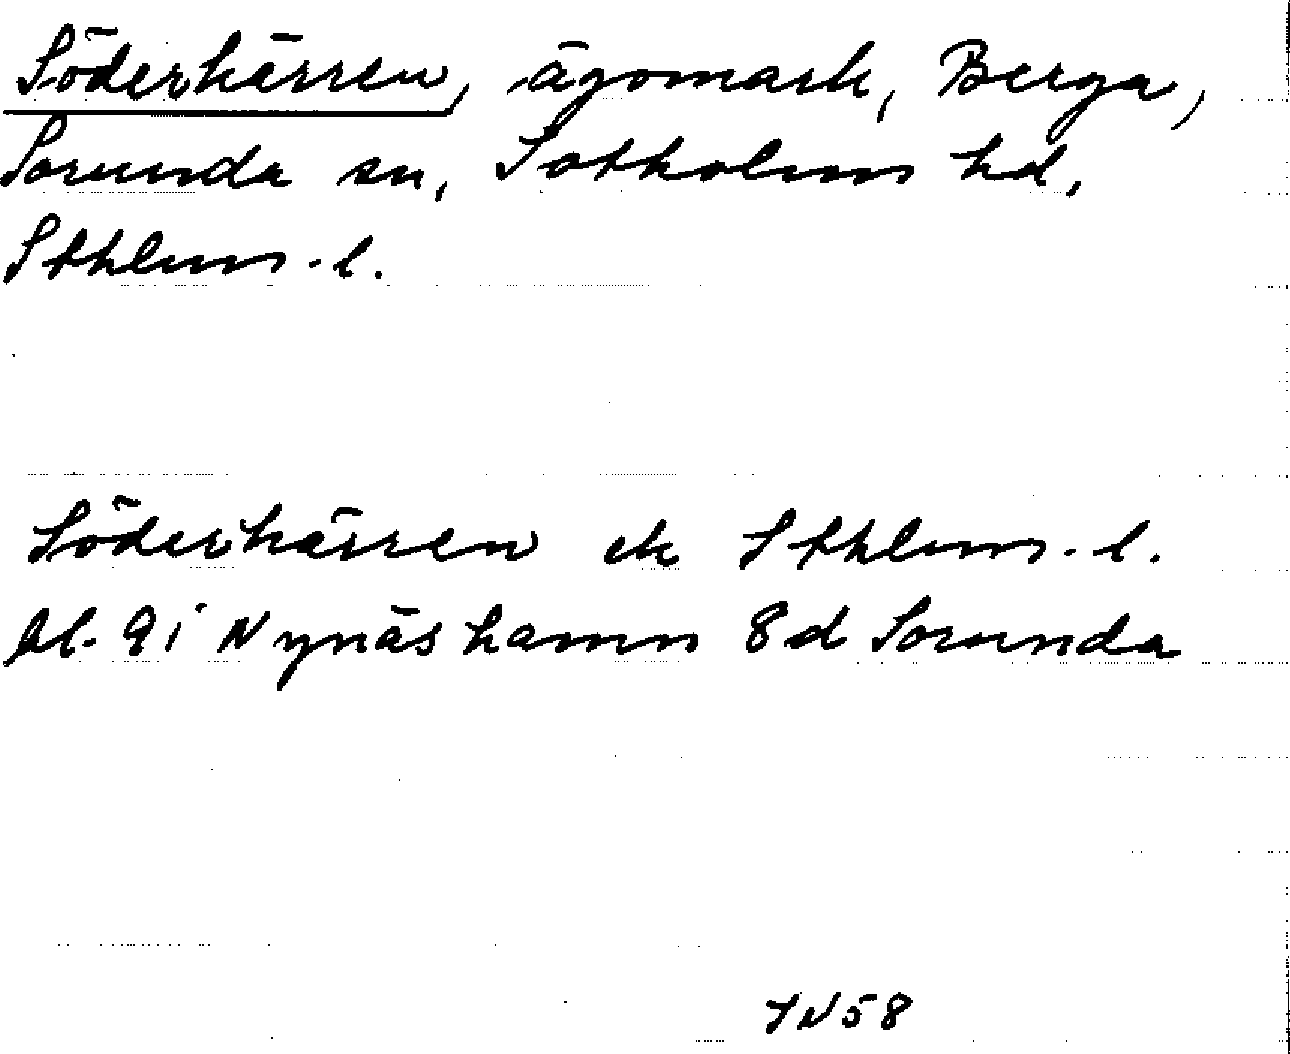 Söderkärren, ägomark, Berga,
Sorunda sn, Sotholms hd,
Sthlms. l.
Söderkärren ek Sthlms. l.
bl. 9i Nynäshamn 8d Sorunda
IN58